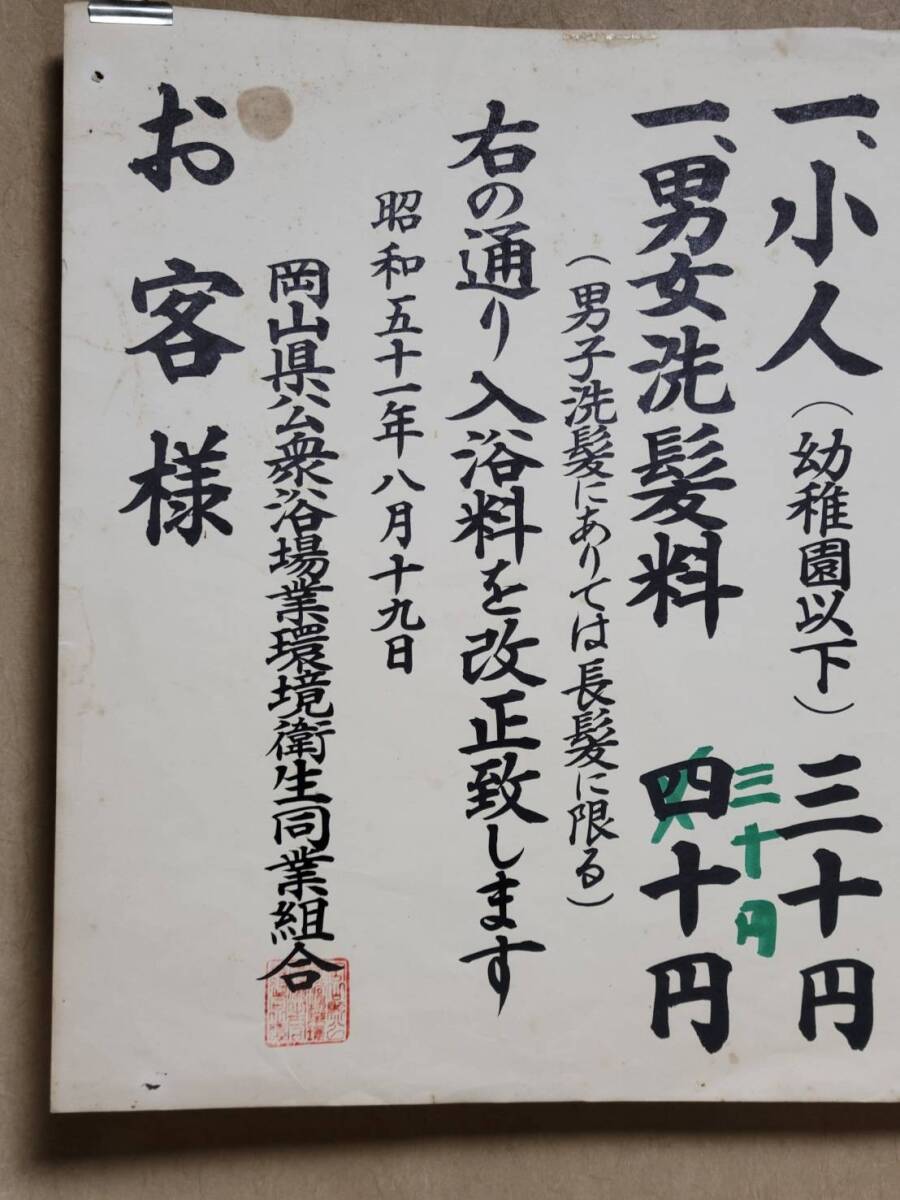 一、小人（幼稚園以下）三十円
一、男女洗髪料 四十円
三十円
（男子洗髪にありては長髪に限る）
右の通り入浴料を改正致します
昭和五十一年八月十九日
岡山県公衆浴場業環境衛生同業組合
お客様